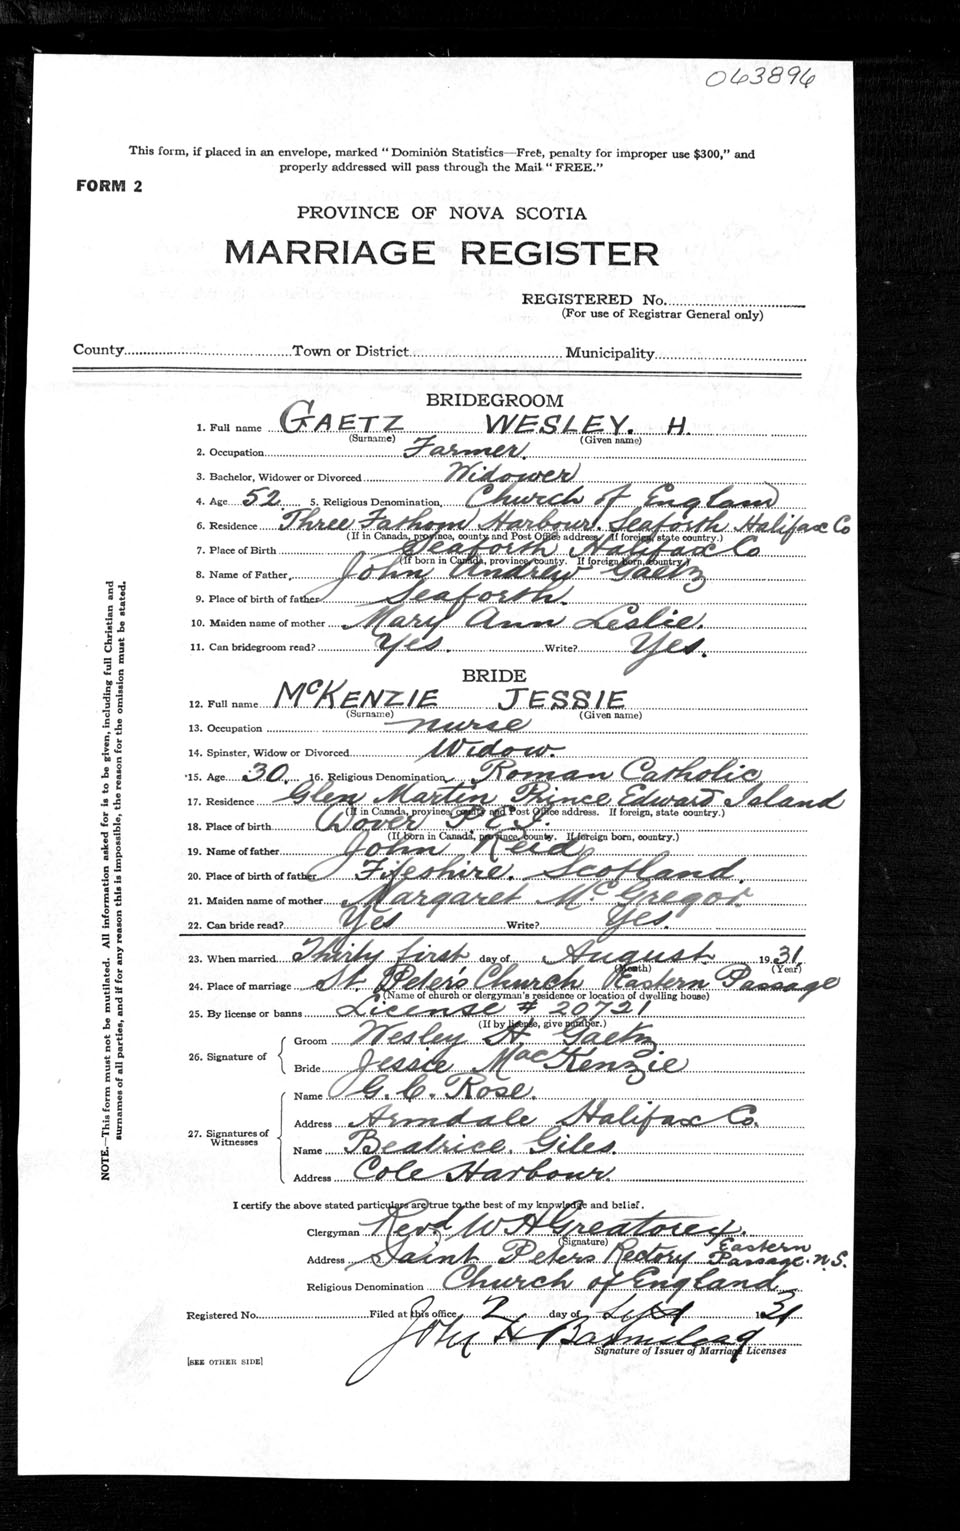 063896
This form, if placed in an envelope, marked "Dominion Statistics—Free, penalty for improper use $300," and
properly addressed will pass through the Mail "FREE."
FORM 2
PROVINCE OF NOVA SCOTIA
MARRIAGE REGISTER
REGISTERED No.
(For use of Registrar General only)
County Town or District Municipality
BRIDEGROOM
1. Full name GAETZ WESLEY. H.
(Surname) (Given name)
2. Occupation Farmer.
3. Bachelor, Widower or Divorced Widower
4. Age 52 5. Religious Denomination, Church of England
6. Residence Three Fathom Harbour. Seaforth Halifax Co
(If in Canada, province, county and Post Office address. If foreign, state country.)
7. Place of Birth Seaforth Halifax Co
(If born in Canada, province, county. If foreign born, country.)
8. Name of Father, John Andrew Gaetz
9. Place of birth of father Seaforth.
10. Maiden name of mother Mary Ann Leslie.
11. Can bridegroom read? Yes. Write? Yes.
BRIDE
12. Full name McKENZIE JESSIE
(Surname) (Given name)
13. Occupation nurse
14. Spinster, Widow or Divorced Widow.
15. Age 30. 16. Religious Denomination, Roman Catholic
17. Residence Glen Martin Prince Edward Island
(If in Canada, province, county and Post Office address. If foreign, state country.)
18. Place of birth Dover P.E.I.
(If born in Canada, province, county. If foreign born, country.)
19. Name of father John Reid
20. Place of birth of father Fifeshire. Scotland.
21. Maiden name of mother Margaret McGregor.
22. Can bride read? Yes Write? Yes.
23. When married Thirty first day of August. 1931
(Month) (Year)
24. Place of marriage St. Peter's Church Eastern Passage
(Name of church or clergyman's residence or location of dwelling house)
25. By license or banns License # 20721
(If by license, give number.)
26. Signature of
Groom Wesley H Gaetz
Bride Jessie MacKenzie
27. Signatures of Witnesses
Name G. C. Rose.
Address Armdale Halifax Co.
Name Beatrice. Giles.
Address Cole Harbour.
I certify the above stated particulars are true to the best of my knowledge and belief.
Clergyman Revd W A Greatorex.
(Signature)
Address Saint Peters Rectory Eastern Passage. N.S.
Religious Denomination Church of England
Registered No. Filed at this office 2 day of Sept 1931
John H
Signature of Issuer of Marriage Licenses
[SEE OTHER SIDE]
NOTE.—This form must not be mutilated. All information asked for is to be given, including full Christian and
surnames of all parties, and if for any reason this is impossible, the reason for the omission must be stated.